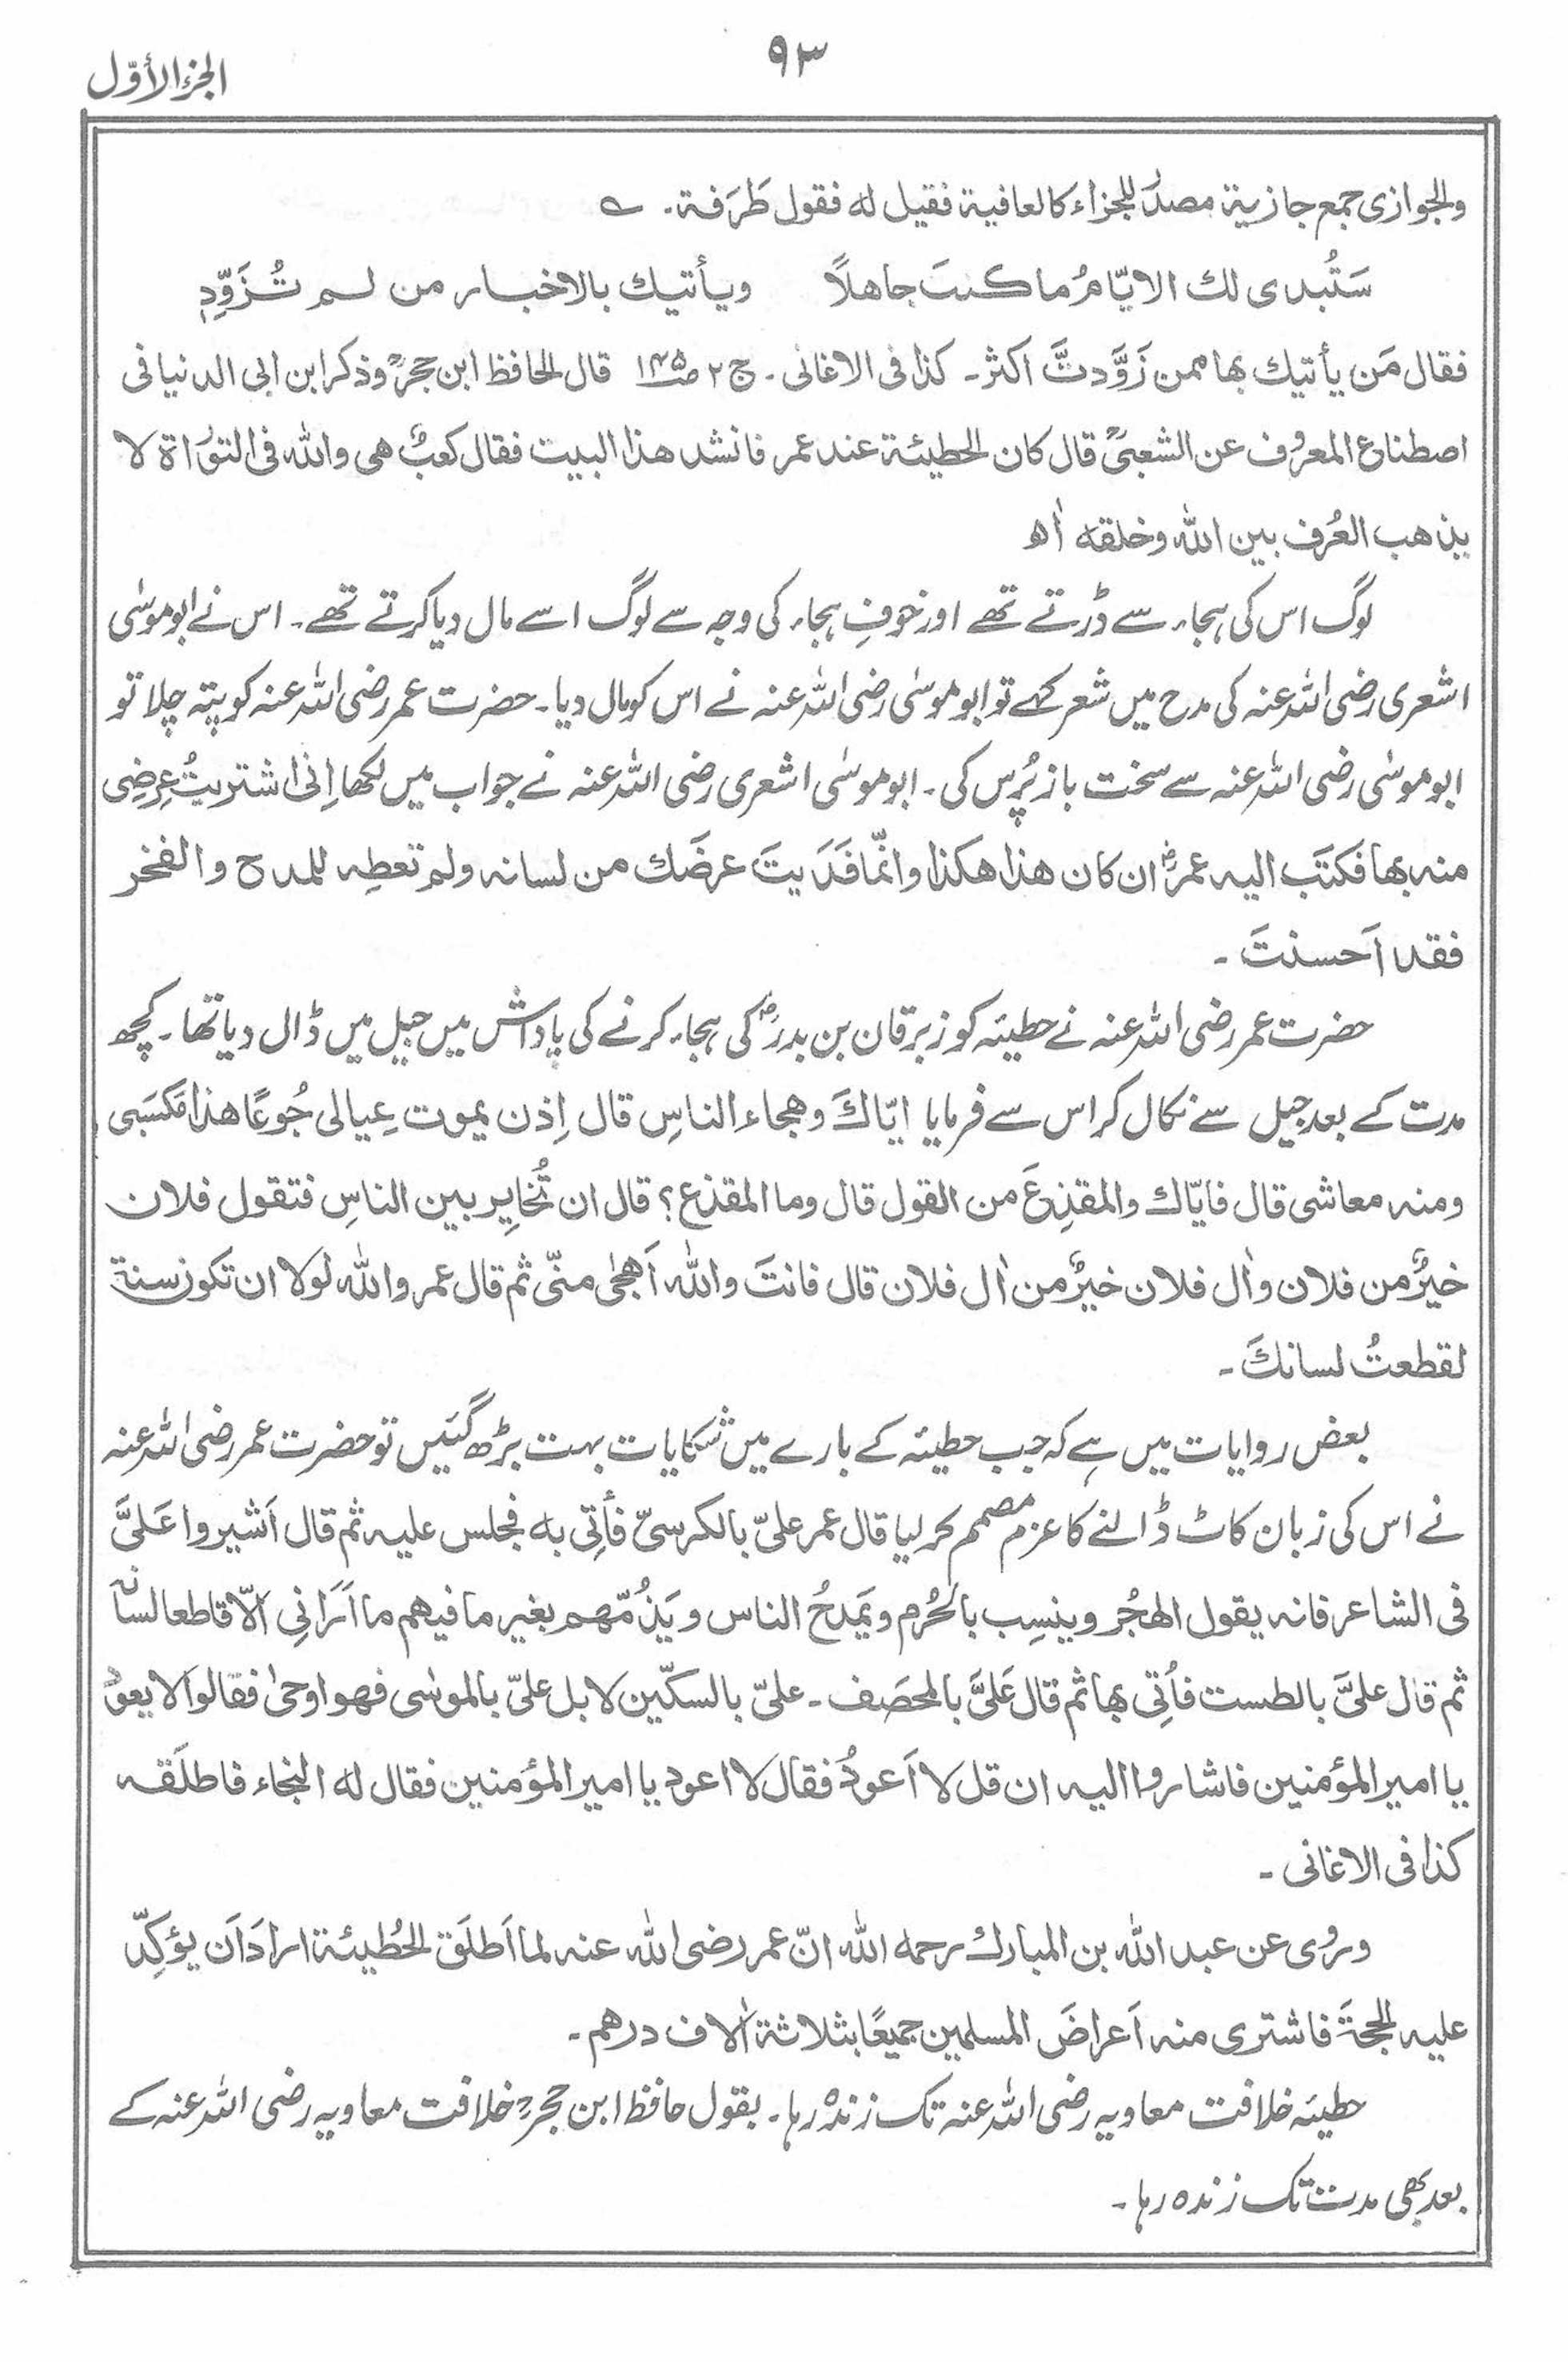 ٩٣
الجزء الأوّل
والجوازى جمع جازية مصدر للجزاء كالعافية فقيل له فقول طَرَفة۔ ؎
سَتُبدى لك الايّامُ ما كنتَ جاهلًا ويأتيك بالاخبار من لم تُزَوِّدِ
فقال مَن يأتيك بها ممن زَوَّدتَّ اكثر۔ كذا فى الاغانى۔ ج ٢ ص ١٤٥ قال الحافظ ابن حجرؒ وذكر ابن ابى الدنيا فى
اصطناع المعروف عن الشعبىؒ قال كان الحطيئة عند عمر فانشد هذا البيت فقال كعبٌ هى والله فى التوراة لا
يذهب العُرف بين الله وخلقه اٰه
لوگ اس کی ہجاء سے ڈرتے تھے اور خوفِ ہجاء کی وجہ سے لوگ اسے مال دیا کرتے تھے۔ اس نے ابو موسٰی
اشعری رضی اللہ عنہ کی مدح میں شعر کہے تو ابو موسٰی رضی اللہ عنہ نے اس کو مال دیا۔ حضرت عمر رضی اللہ عنہ کو پتہ چلا تو
ابو موسٰی رضی اللہ عنہ سے سخت باز پُرس کی۔ ابو موسٰی اشعری رضی اللہ عنہ نے جواب میں لکھا اِنی اشتریتُ عِرضِی
منه بها فكتَب اليه عمرؓ ان كان هذا هكذا وانّما فَدَيتَ عرضَك من لسانه ولم تعطِه للمدح والفخر
فقد اَحسنتَ۔
حضرت عمر رضی اللہ عنہ نے حطیئہ کو زبرقان بن بدرؓ کی ہجاء کرنے کی پاداش میں جیل میں ڈال دیا تھا۔ کچھ
مدت کے بعد جیل سے نکال کر اس سے فرمایا ايّاكَ وهجاء الناسِ قال اِذن يموت عِيالى جُوعًا هذا مَكسَبى
ومنه معاشى قال فايّاك والمقذِعَ من القول قال وما المقذع؟ قال ان تُخايِر بين الناسِ فتقول فلان
خيرٌ من فلان واٰل فلان خيرٌ من اٰل فلان قال فانتَ والله اَهجٰى منّى ثم قال عمر والله لولا ان تكون سنة
لقطعتُ لسانكَ۔
بعض روایات میں ہے کہ جب حطیئہ کے بارے میں شکایات بہت بڑھ گئیں تو حضرت عمر رضی اللہ عنہ
نے اس کی زبان کاٹ ڈالنے کا عزم مصمم کر لیا قال عمر علىّ بالكرسىّ فأُتِى به فجلس عليه ثم قال اَشيروا عَلىَّ
فى الشاعر فانه يقول الهُجُر وينسِب بالحُرم ويَمدحُ الناس ويَذُمّهم بغير ما فيهم ما اَرَانِى اِلّا قاطعا لسانَه
ثم قال علىَّ بالطست فأُتِى بها ثم قال عَلىَّ بالمحصَف۔ علىّ بالسكّين لا بل علىّ بالموسٰى فهو اوحىٰ فقالوا لا يعود
يا امير المؤمنين فاشاروا اليه ان قل لا اَعودُ فقال لا اعود يا امير المؤمنين فقال له النجاء فاطلَقه
كذا فى الاغانى۔
وروى عن عبد الله بن المبارك رحمه الله انّ عمر رضى الله عنه لما اَطلَق الحُطيئة ارادَ اَن يؤكِّد
عليه الحجةَ فاشترى منه اَعراضَ المسلمين جميعًا بثلاثة اٰلاف درهم۔
حطیئہ خلافت معاویہ رضی اللہ عنہ تک زندہ رہا۔ بقول حافظ ابن حجرؒ خلافت معاویہ رضی اللہ عنہ کے
بعد بھی مدت تک زندہ رہا۔